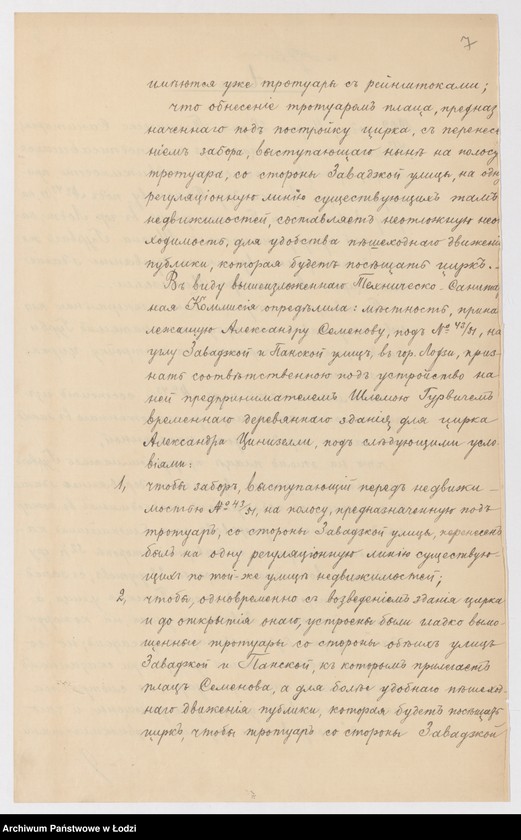 7
имѣются уже тротуары съ рейнштоками;
что обнесеніе тротуаромъ плаца, предназ
наченнаго подъ постройку цирка, съ перенесе
ніемъ забора, выступающаго нынѣ на полосу
тротуара, со стороны Завадзкой улицы, на одну
регуляціонную линію существующихъ тамъ
недвижимостей, составляетъ неотложную нео
ходимость, для удобства пѣшеходнаго движені
публики, которая будетъ посѣщать циркъ.
Въ виду вышеизложеннаго Техническо-Санита
ная Коммисія опредѣлила: мѣстность, прина
лежащую Александру Семенову, подъ № 42/51, на
углу Завадзкой и Панской улицъ, въ гор. Лодзи, приз
нать соотвѣтственною подъ устройство на
ней предпринимателемъ Шлемою Гурвичемъ
временнаго деревяннаго зданія для цирка
Александра Цинизелли, подъ слѣдующими усло
віями:
1, чтобы заборъ, выступающій передъ недвижи-
мостью № 43/51, на полосу, предназначенную подъ
тротуаръ, со стороны Завадзкой улицы, перенесенъ
былъ на одну регуляціонную линію существую-
щихъ по той-же улицѣ недвижимостей;
2, чтобы, одновременно съ возведеніемъ зданія цирка
и до открытія онаго, устроены были гладко вымо-
щенные тротуары со стороны обѣихъ улицъ
Завадзкой и Панской, къ которымъ прилегаетъ
плацъ Семенова, а для болѣе удобнаго пѣшеход-
наго движенія публики, которая будетъ посѣщать
циркъ, чтобы тротуаръ со стороны Завадзкой
Archiwum Państwowe w Łodzi